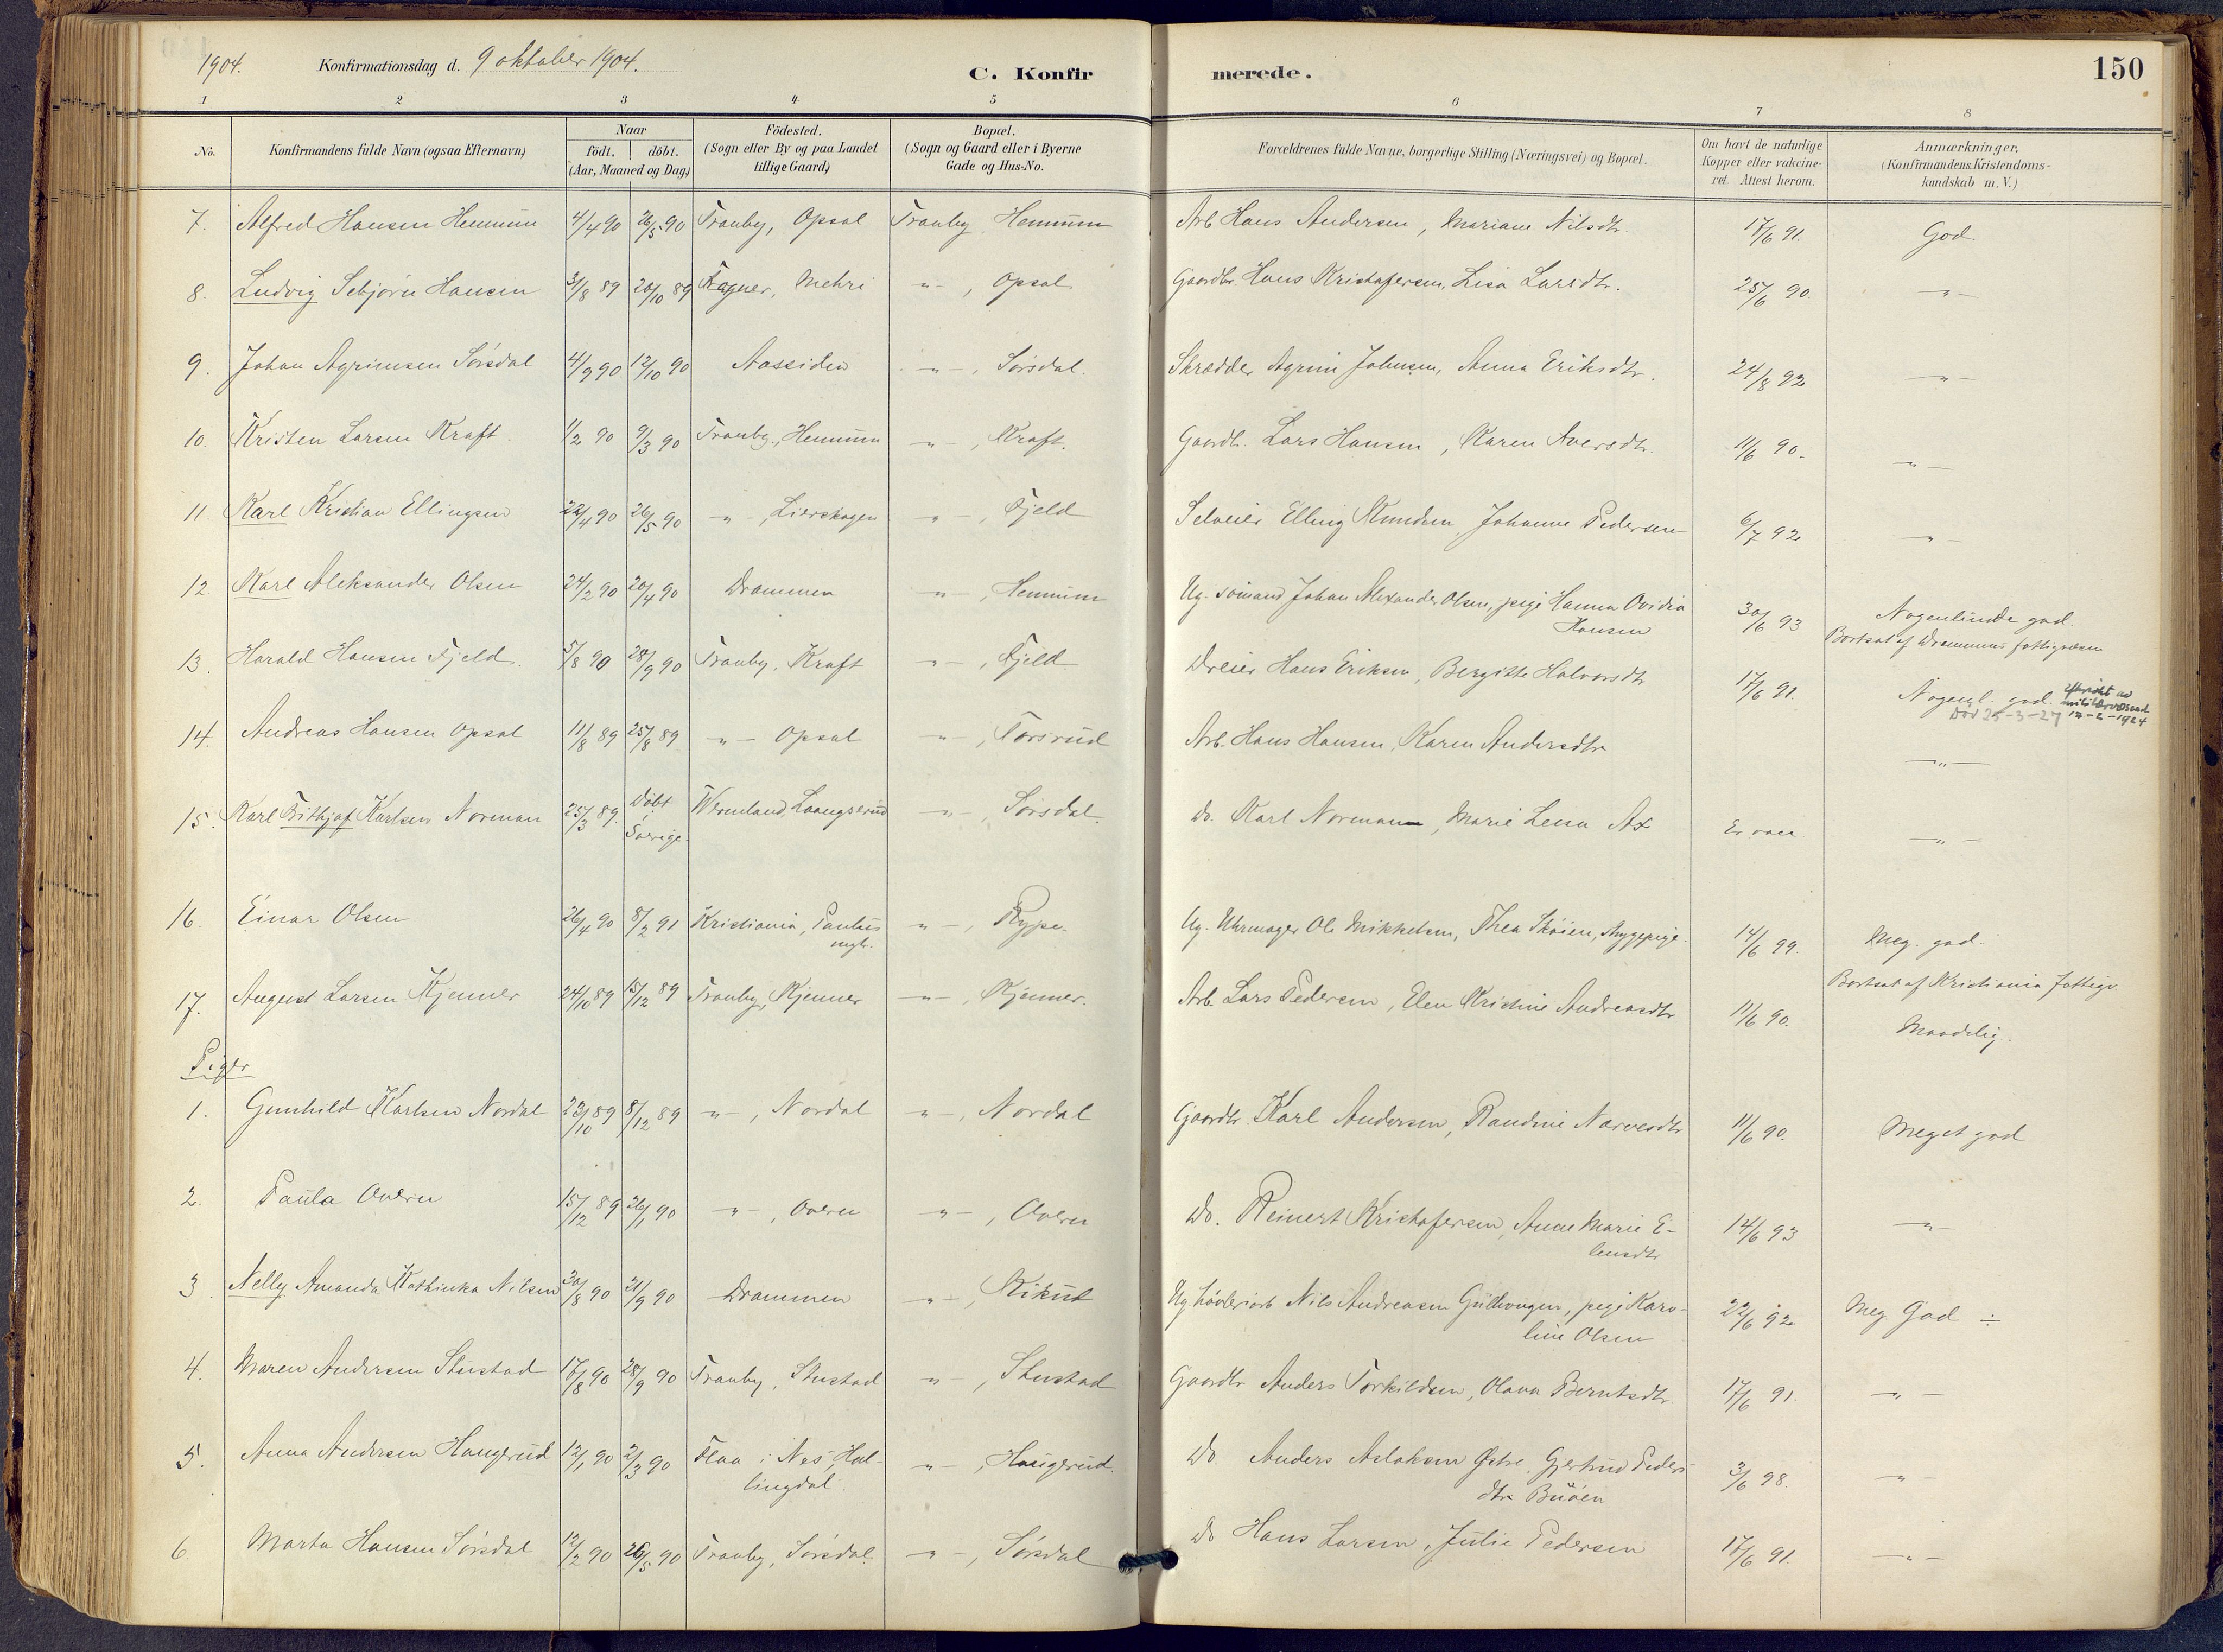 1904. Konfirmationsdag d. 9 oktober 1904. C. Konfirmerede. 150
1 2 3 4 5 6 7 8
No. Konfirmandens fulde Navn (ogsaa Efternavn) Naar födt. döbt. (Aar, Maaned og Dag) Födested. (Sogn eller By og paa Landet tillige Gaard) Bopæl. (Sogn og Gaard eller i Byerne Gade og Hus-No. Forældrenes fulde Navne, borgerlige Stilling (Næringsvei) og Bopæl. Om havt de naturlige Kopper eller vakcineret. Attest herom. Anmærkninger. (Konfirmandens Kristendomskundskab m. V.)
7. Alfred Hansen Hennum 4/4 90 26/5 90 Tranby, Opsal Tranby Hennum Arb. Hans Andersen, Mariane Nilsdtr. 17/6 91. God.
8. Ludvig Sebjørn Hansen 3/8 89 20/10 89 Mehri -"-, Opsal Gaardbr. Hans Kristofersen, Lisa Larsdtr. 25/6 90. -"-
9. Johan Agrimsen Sørsdal 4/9 90 12/10 90 Aassiden -"-, Sørsdal. Skrædder Agrim Johnsen, Anna Eriksdtr. 24/8 92 -"-
10. Kristen Larsen Kraft. 1/2 90 9/3 90 Tranby, Hennum -"-, Kraft. Gaardb. Lars Hansen, Karen Aversdtr. 11/6 90. -"-
11 Karl Kristian Ellingsen 22/4 90 26/5 90 -"-, Lierskogen -"-, Fjeld Selveier Elling Knudsen Johanne Pedersen 6/7 92 -"-
12 Karl Aleksander Olsen 24/2 90 20/4 90 Drammen -"-, Hennum Ug. sømand Johan Alexander Olsen, pige Hanna Ovidia Hansen 30/6 93 Nogenlunde god.
Bortsat af Drammens fattigvæsen
13. Harald Hansen Fjeld. 5/8 90 28/9 90 Tranby, Kraft -"-, Fjeld Dreier Hans Eriksen, Bergitte Halvorsdtr 17/6 91. Nogenl. god.
Død 25-3-27 12-2-1924
14. Andreas Hansen Opsal 11/8 89 25/8 89 -"- Opsal -"-, Torsrud Arb. Hans Hansen, Karen Andersdtr -"-
15. Karl Frithjof Karlsen Norman 25/3 89. Døbt i Sverige. Wermland, Laangserud -"-, Sørsdal. Do. Karl Norman, Marie Lena Ax Er vacc -"-
16. Einar Olsen 26/4 90 8/2 91 Kristiania, Paulus mgh. -"-, Rype. Ug. Uhrmager Ole Mikkelsen, Thea Skøien, sygepige. 14/6 99. Meg. god.
Bortsat af Kristiania fattigv.
17. August Larsen Kjenner 24/10 89 15/12 89 Tranby, Kjenner -"-, Kjenner. Arb. Lars Pedersen, Elen Kristine Andreasdtr 11/6 90. Maadelig.
Piger
1. Gunhild Karlsen Nordal 22/10 89 8/12 89 -"-, Nordal -"-, Nordal Gaardbr. Karl Andersen, Randine Narvesdtr 11/6 90. Meget god
2. Paula Overn 15/12 89 26/1 90 -"-, Overn -"-, Overn Do. Reinert Kristofersen, Anne Marie Elensdtr 14/6 93 -"-
3. Nelly Amanda Kathinka Nilsen 30/8 90 21/9 90 Drammen -"-, Kikut Ug. høvleriarb Nils Andreasen Gulhougen, pige Karoline Olsen 22/6 92 Meg. God ÷
4. Maren Andersen Stustad 17/8 90 28/9 90 Tranby, Stustad -"-, Stustad Gaardbr Anders Torkildsen, Olava Berntsdtr. 17/6 91. -"-
5. Anna Andersen Haugerud 12/1 90 2/3 90 Flaa i Nes, Hallingdal. -"-, Haugerud. Do Anders Aslaksen Østre. Gjertrud Pedersdtr Buøen 3/6 98. -"-
6 Marta Hansen Sørsdal 12/2 90 26/5 90 Tranby, Sørsdal. -"-, Sørsdal Do Hans Larsen, Julie Pedersen 17/6 91. -"-